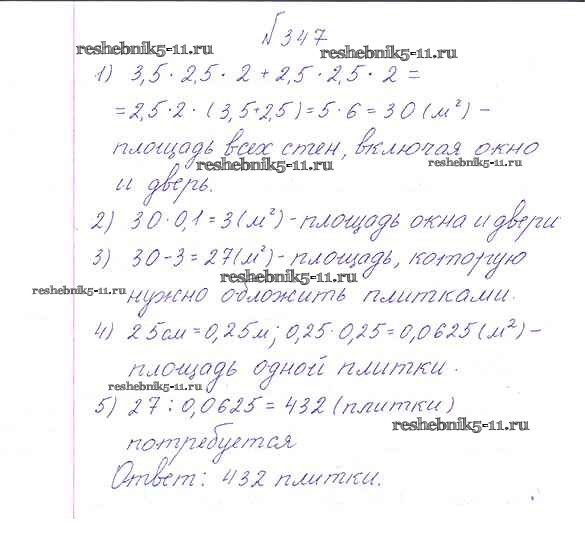 №347
reshebnik5-11.ru
reshebnik5-11.ru
1) 3,5 · 2,5 · 2 + 2,5 · 2,5 · 2 =
= 2,5 · 2 · (3,5+2,5) = 5 · 6 = 30 (м²) –
площадь всех стен, включая окно
reshebnik5-11.ru
reshebnik5-11.ru
и дверь.
2) 30 · 0,1 = 3 (м²) - площадь окна и двери
3) 30 - 3 = 27 (м²) - площадь, которую
reshebnik5-11.ru
reshebnik5-11.ru
нужно обложить плитками.
4) 25 см = 0,25 м; 0,25 · 0,25 = 0,0625 (м²) –
площадь одной плитки.
reshebnik5-11.ru
5) 27 : 0,0625 = 432 (плитки)
reshebnik5-11.ru
потребуется
Ответ: 432 плитки.